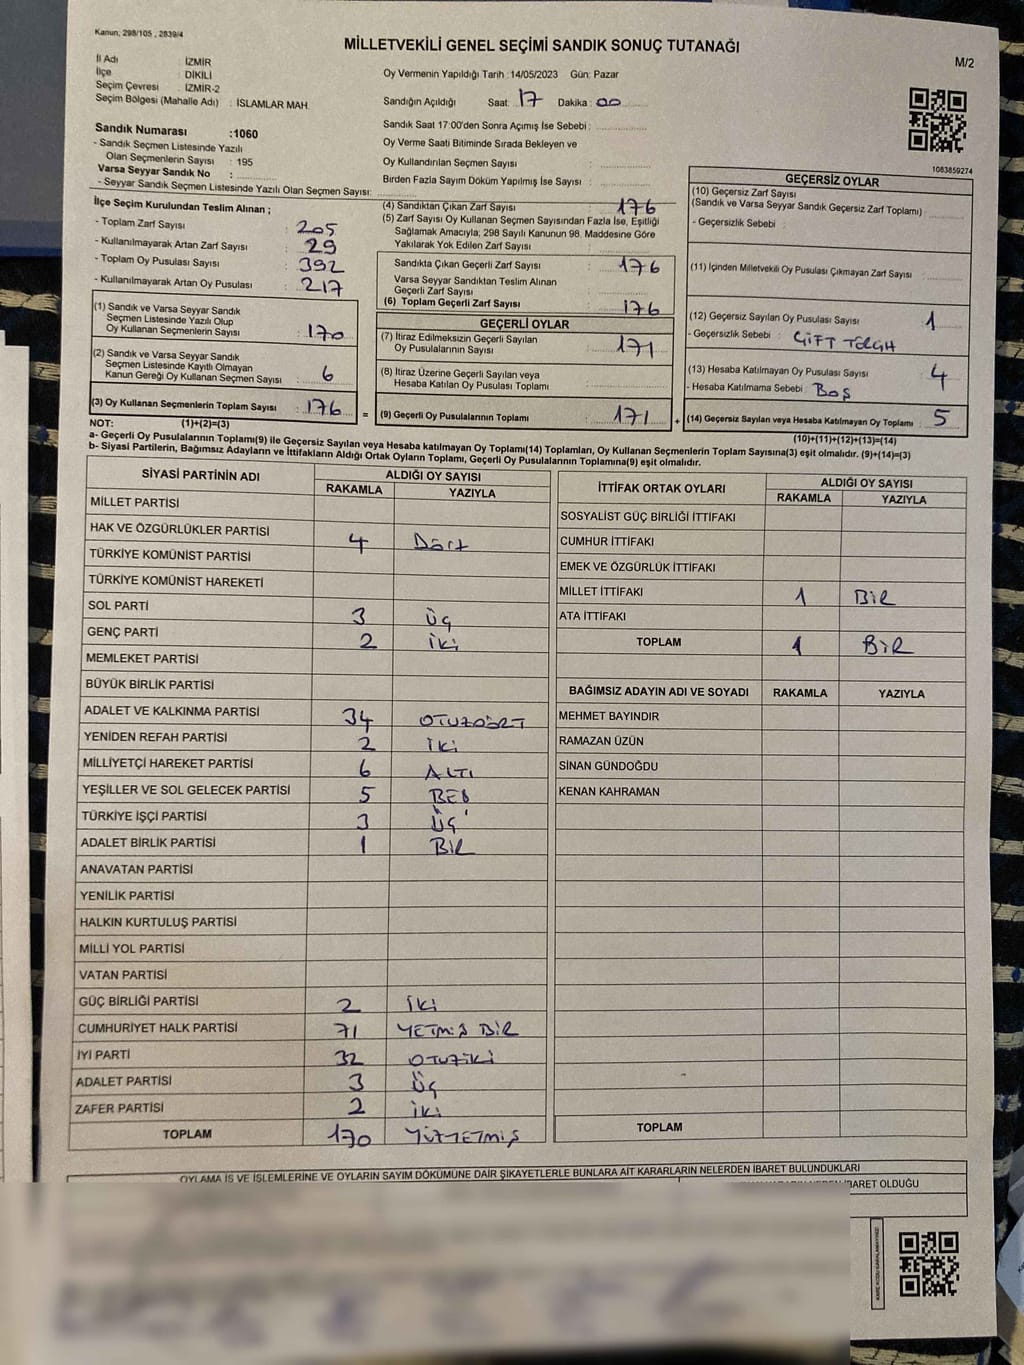 Kanun; 298/105 , 2839/4
MİLLETVEKİLİ GENEL SEÇİMİ SANDIK SONUÇ TUTANAĞI
M/2
İl Adı : İZMİR
İlçe : DİKİLİ
Seçim Çevresi : İZMİR-2
Seçim Bölgesi (Mahalle Adı) : İSLAMLAR MAH.
Sandık Numarası :1060
- Sandık Seçmen Listesinde Yazılı
Olan Seçmenlerin Sayısı : 195
Varsa Seyyar Sandık No :
- Seyyar Sandık Seçmen Listesinde Yazılı Olan Seçmen Sayısı:
Oy Vermenin Yapıldığı Tarih :14/05/2023 Gün: Pazar
Sandığın Açıldığı Saat: 17 Dakika : 00
Sandık Saat 17:00'den Sonra Açımış İse Sebebi :
Oy Verme Saati Bitiminde Sırada Bekleyen ve
Oy Kullandırılan Seçmen Sayısı :
Birden Fazla Sayım Döküm Yapılmış İse Sayısı :
1083859274
İlçe Seçim Kurulundan Teslim Alınan ;
- Toplam Zarf Sayısı : 205
- Kullanılmayarak Artan Zarf Sayısı : 29
- Toplam Oy Pusulası Sayısı : 392
- Kullanılmayarak Artan Oy Pusulası : 217
(1) Sandık ve Varsa Seyyar Sandık
Seçmen Listesinde Yazılı Olup
Oy Kullanan Seçmenlerin Sayısı : 170
(2) Sandık ve Varsa Seyyar Sandık
Seçmen Listesinde Kayıtlı Olmayan
Kanun Gereği Oy Kullanan Seçmen Sayısı : 6
(3) Oy Kullanan Seçmenlerin Toplam Sayısı : 176
(4) Sandıktan Çıkan Zarf Sayısı : 176
(5) Zarf Sayısı Oy Kullanan Seçmen Sayısından Fazla İse, Eşitliği
Sağlamak Amacıyla; 298 Sayılı Kanunun 98. Maddesine Göre
Yakılarak Yok Edilen Zarf Sayısı :
Sandıkta Çıkan Geçerli Zarf Sayısı : 176
Varsa Seyyar Sandıktan Teslim Alınan
Geçerli Zarf Sayısı :
(6) Toplam Geçerli Zarf Sayısı : 176
GEÇERLİ OYLAR
(7) İtiraz Edilmeksizin Geçerli Sayılan
Oy Pusulalarının Sayısı : 171
(8) İtiraz Üzerine Geçerli Sayılan veya
Hesaba Katılan Oy Pusulası Toplamı :
= (9) Geçerli Oy Pusulalarının Toplamı : 171 +
GEÇERSİZ OYLAR
(10) Geçersiz Zarf Sayısı
(Sandık ve Varsa Seyyar Sandık Geçersiz Zarf Toplamı) :
- Geçersizlik Sebebi :
(11) İçinden Milletvekili Oy Pusulası Çıkmayan Zarf Sayısı :
(12) Geçersiz Sayılan Oy Pusulası Sayısı : 1
- Geçersizlik Sebebi : ÇİFT TERCH
(13) Hesaba Katılmayan Oy Pusulası Sayısı : 4
- Hesaba Katılmama Sebebi : Boş
(14) Geçersiz Sayılan veya Hesaba Katılmayan Oy Toplamı : 5
NOT: (1)+(2)=(3)
(10)+(11)+(12)+(13)=(14)
a- Geçerli Oy Pusulalarının Toplamı(9) ile Geçersiz Sayılan veya Hesaba katılmayan Oy Toplamı(14) Toplamları, Oy Kullanan Seçmenlerin Toplam Sayısına(3) eşit olmalıdır. (9)+(14)=(3)
b- Siyasi Partilerin, Bağımsız Adayların ve İttifakların Aldığı Ortak Oyların Toplamı, Geçerli Oy Pusulalarının Toplamına(9) eşit olmalıdır.
SİYASİ PARTİNİN ADI ALDIĞI OY SAYISI
RAKAMLA YAZIYLA
MİLLET PARTİSİ
HAK VE ÖZGÜRLÜKLER PARTİSİ 4 Dört
TÜRKİYE KOMÜNİST PARTİSİ
TÜRKİYE KOMÜNİST HAREKETİ
SOL PARTİ 3 Üç
GENÇ PARTİ 2 İki
MEMLEKET PARTİSİ
BÜYÜK BİRLİK PARTİSİ
ADALET VE KALKINMA PARTİSİ 34 OTUZDÖRT
YENİDEN REFAH PARTİSİ 2 İki
MİLLİYETÇİ HAREKET PARTİSİ 6 ALTI
YEŞİLLER VE SOL GELECEK PARTİSİ 5 BEŞ
TÜRKİYE İŞÇİ PARTİSİ 3 ÜÇ
ADALET BİRLİK PARTİSİ 1 BİR
ANAVATAN PARTİSİ
YENİLİK PARTİSİ
HALKIN KURTULUŞ PARTİSİ
MİLLİ YOL PARTİSİ
VATAN PARTİSİ
GÜÇ BİRLİĞİ PARTİSİ 2 İki
CUMHURİYET HALK PARTİSİ 71 YETMİŞ BİR
İYİ PARTİ 32 OTUZİKİ
ADALET PARTİSİ 3 Üç
ZAFER PARTİSİ 2 İki
TOPLAM 170 YÜZYETMİŞ
İTTİFAK ORTAK OYLARI ALDIĞI OY SAYISI
RAKAMLA YAZIYLA
SOSYALİST GÜÇ BİRLİĞİ İTTİFAKI
CUMHUR İTTİFAKI
EMEK VE ÖZGÜRLÜK İTTİFAKI
MİLLET İTTİFAKI 1 BİR
ATA İTTİFAKI
TOPLAM 1 BİR
BAĞIMSIZ ADAYIN ADI VE SOYADI RAKAMLA YAZIYLA
MEHMET BAYINDIR
RAMAZAN ÜZÜN
SİNAN GÜNDOĞDU
KENAN KAHRAMAN
TOPLAM
OYLAMA İŞ VE İŞLEMLERİNE VE OYLARIN SAYIM DÖKÜMÜNE DAİR ŞİKAYETLERLE BUNLARA AİT KARARLARIN NELERDEN İBARET BULUNDUKLARI
İBARET OLDUĞU